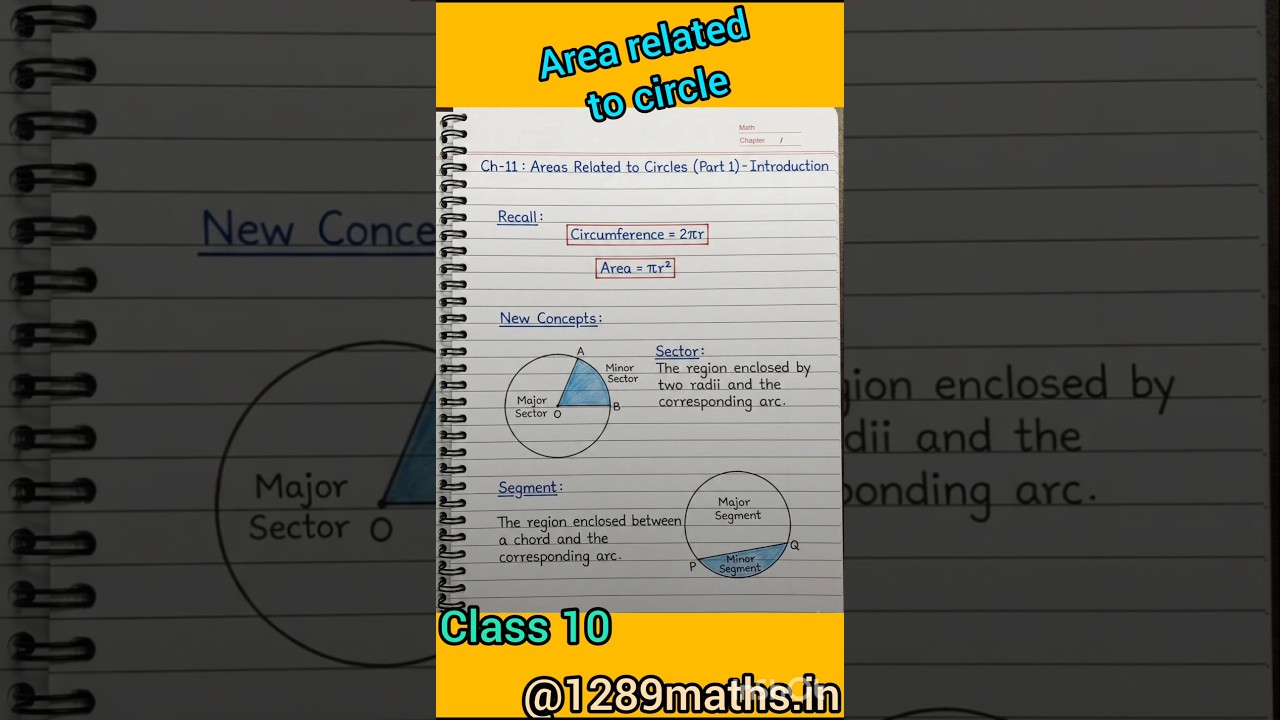 Area related
to circle
Math
Chapter /
Ch-11 : Areas Related to Circles (Part 1) - Introduction
Recall:
Circumference = 2πr
Area = πr²
New Concepts:
A
Minor
Sector
Major
Sector
O
B
Sector:
The region enclosed by
two radii and the
corresponding arc.
Segment:
The region enclosed between
a chord and the
corresponding arc.
Major
Segment
Q
P
Minor
Segment
Class 10
@1289maths.in
New Conce
Major
Sector O
gion enclosed by
dii and the
ponding arc.